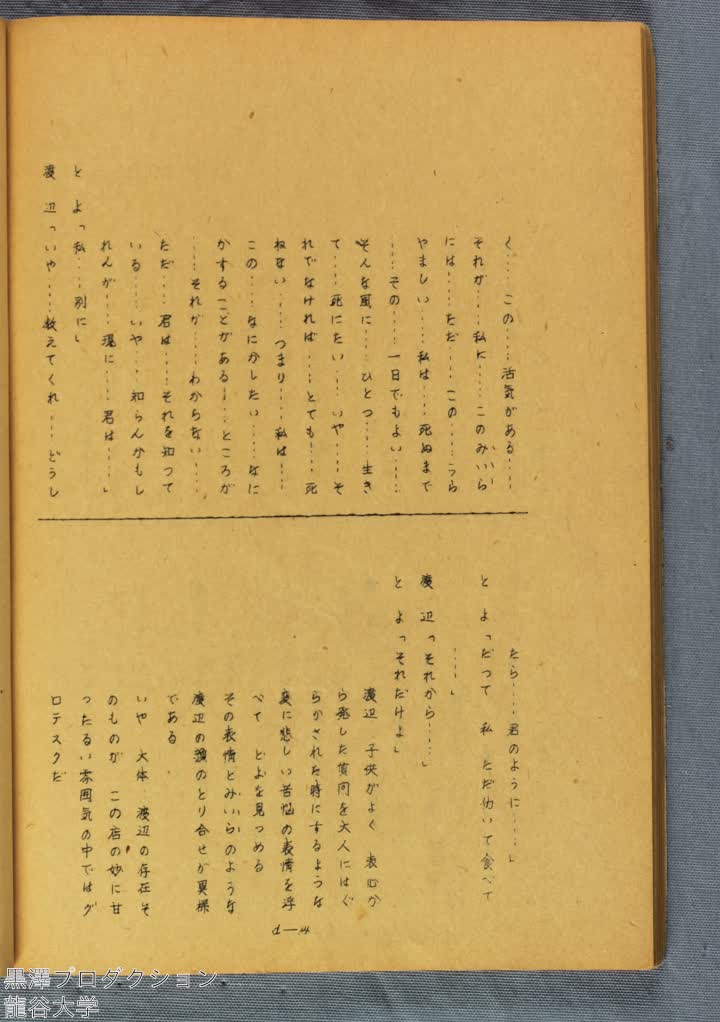 く‥‥ この‥‥活気がある‥‥
それが‥‥私に‥‥このみいら
には‥‥ただ‥‥この‥‥うら
やましい‥‥私は‥‥死ぬまで
‥‥その‥‥一日でもよい‥‥
そんな風に‥‥ひとつ‥‥生き
て‥‥死にたい‥‥いや‥‥そ
れでなければ‥‥とても‥‥死
ねない‥‥つまり‥‥私は‥‥
この‥‥なにかしたい‥‥なに
かすることがある‥‥ところが
‥‥それが‥‥わからない‥‥
ただ‥‥君は‥‥それを知つて
いる‥‥いや‥‥知らんかもし
れんが‥‥現に‥‥君は‥‥」
とよ「私‥‥別に」
渡辺「いや‥‥教えてくれ‥‥どうし
たら‥‥君のように‥‥」
とよ「だつて 私 ただ仂いて食べて
‥‥」
渡辺「それから‥‥」
とよ「それだけよ」
渡辺 子供がよく 衷心か
ら発した質問を大人にはぐ
らかされた時にするような
変に悲しい苦悩の表情を浮
べて とよを見つめる
その表情とみいらのような
渡辺の顔のとり合せが異様
である
いや 大体 渡辺の存在そ
のものが この店の妙に甘
つたるい雰囲気の中ではグ
ロテスクだ
d—4
黒澤プロダクション
龍谷大学